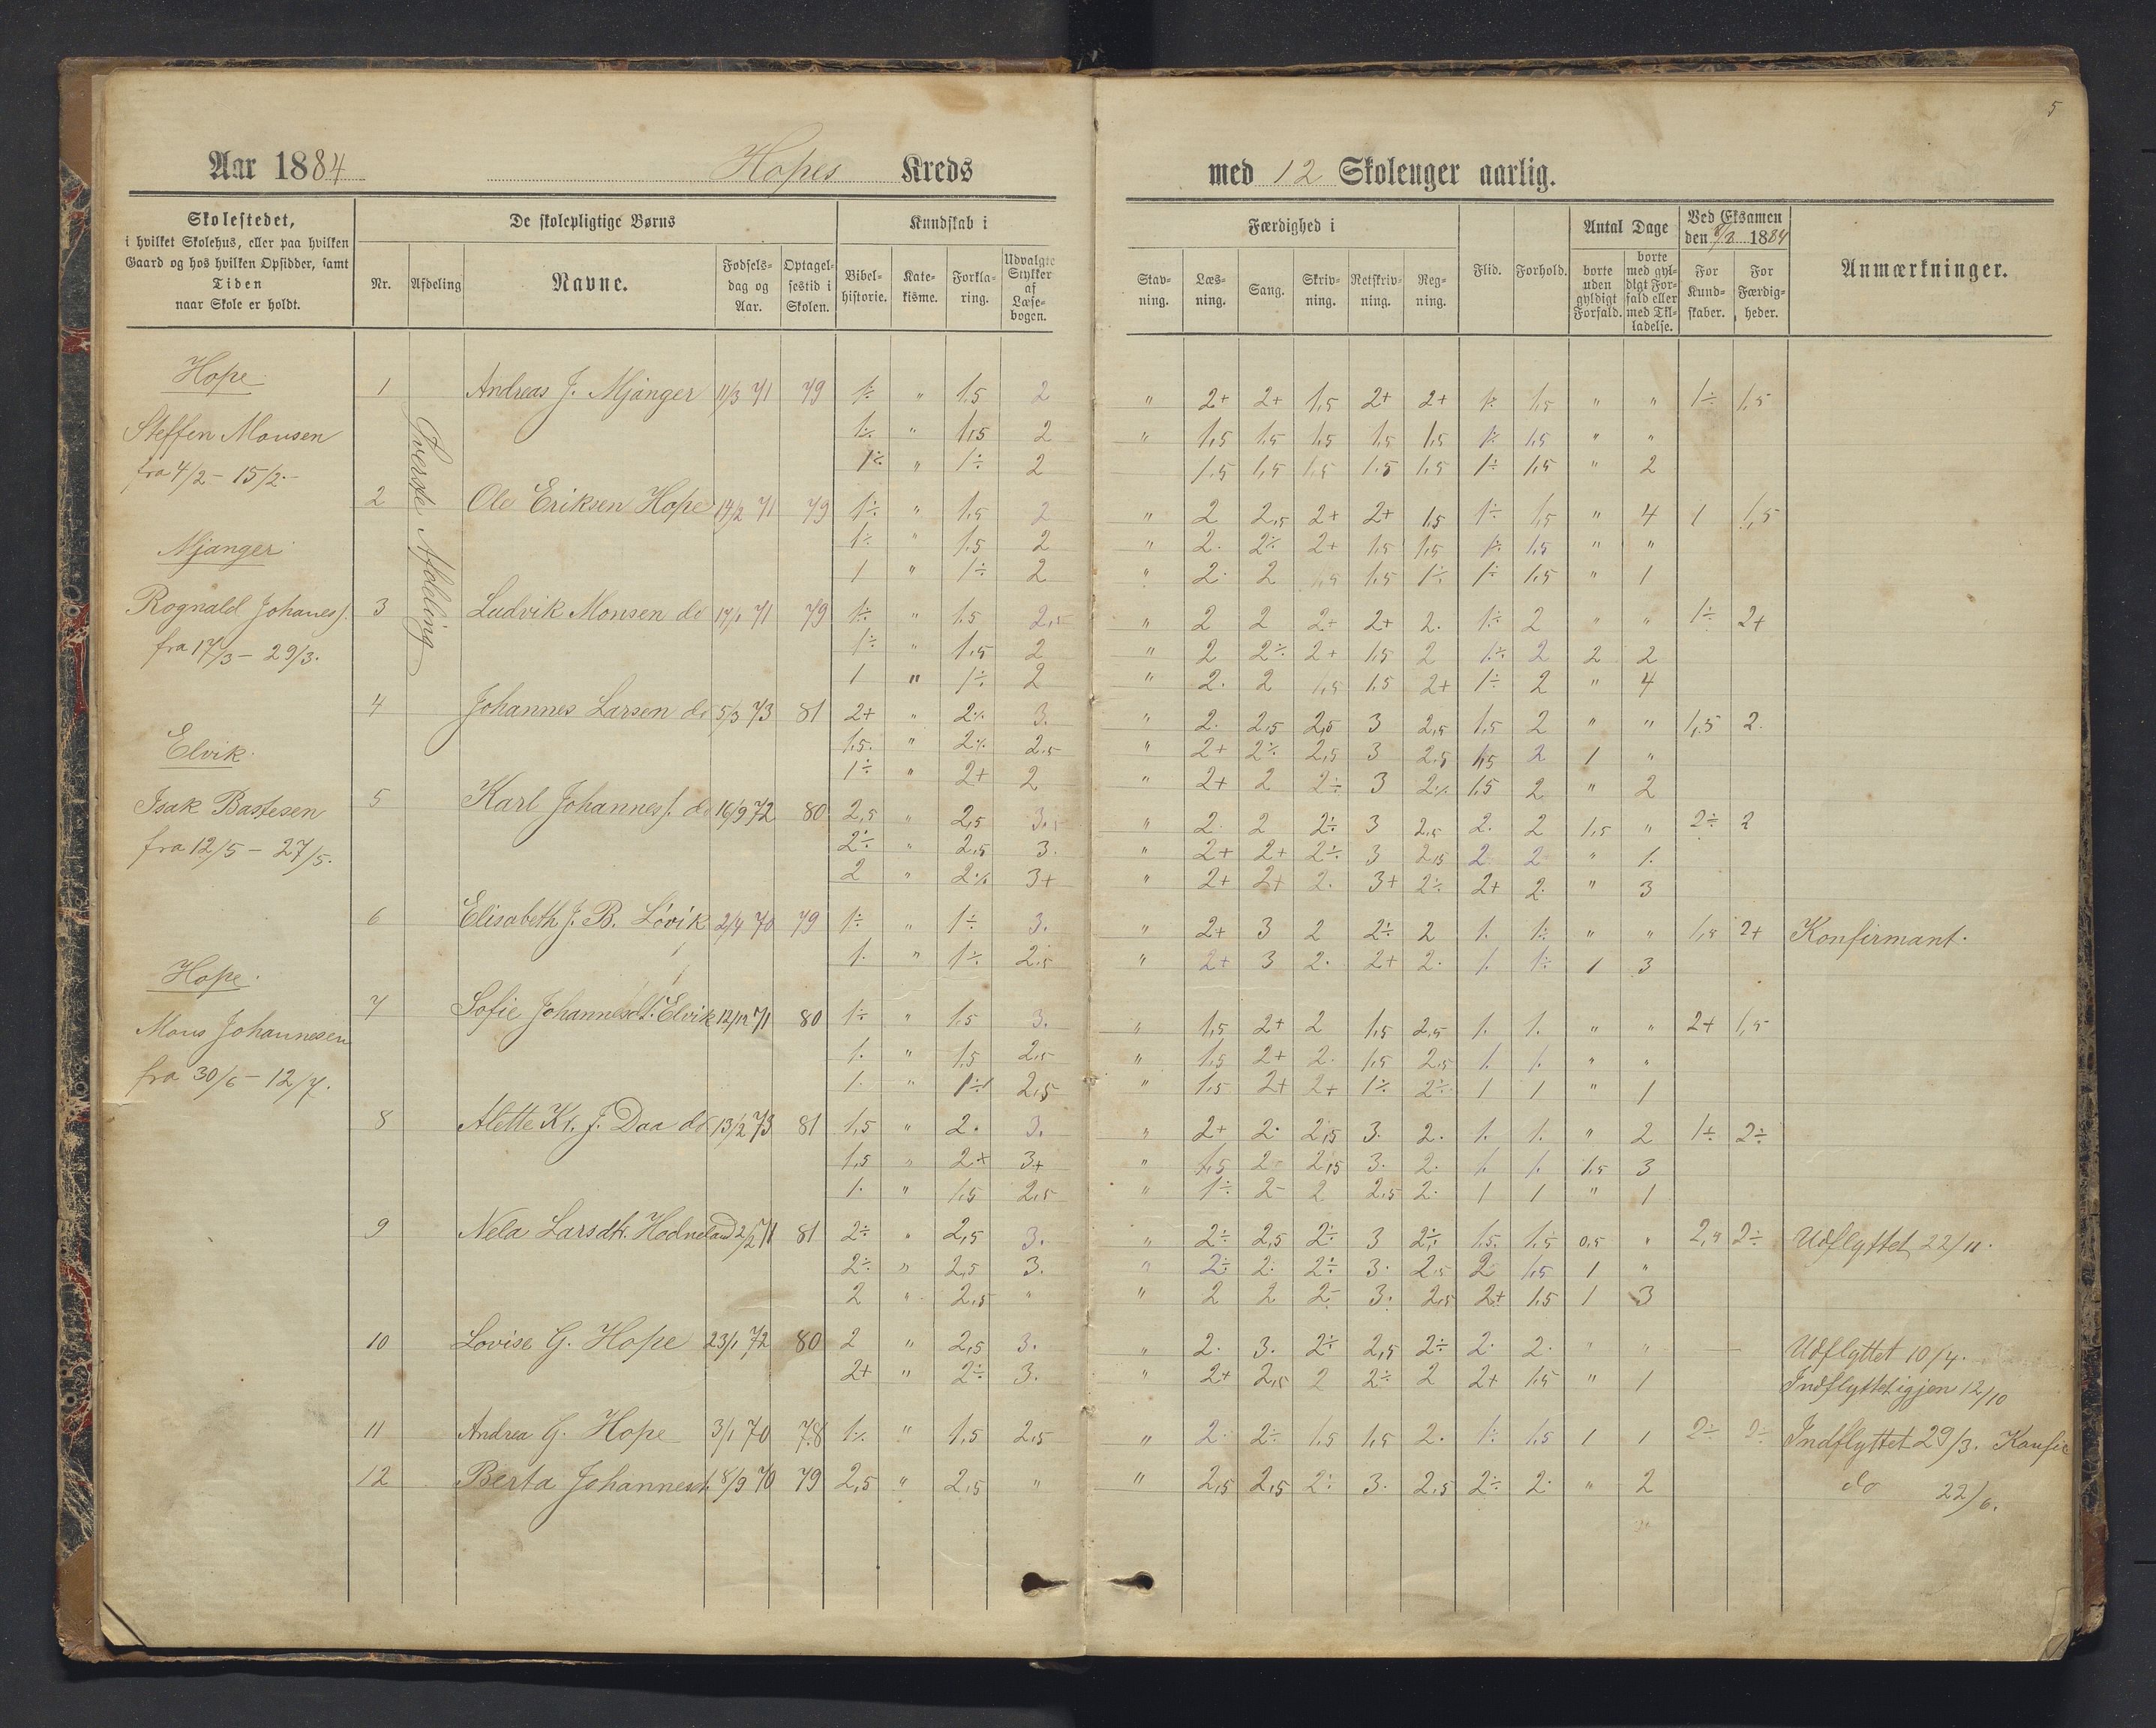 5
Aar 1884 Hopes Kreds med 12 Skoleuger aarlig.
Skolestedet,
i hvilket Skolehus, eller paa hvilken
Gaard og hos hvilken Opsidder, samt
Tiden
naar Skole er holdt.
De skolepligtige Børns
Nr.
Afdeling
Navne.
Fødsels-
dag og
Aar.
Optagel-
sestid i
Skolen.
Kundskab i
Bibel-
historie.
Kate-
kisme.
Forkla-
ring.
Udvalgte
Stykker
af
Læse-
bogen.
Færdighed i
Stav-
ning.
Læs-
ning.
Sang.
Skriv-
ning.
Retskriv-
ning.
Reg-
ning.
Flid.
Forhold.
Antal Dage
borte
uden
gyldigt
Forfald.
borte
med gyl-
digt For-
fald eller
med Til-
ladelse.
Ved Eksamen
den 1884
For
Kund-
skaber.
For
Færdig-
heder.
Anmærkninger.
Hope
Steffen Monsen
fra 4/2 - 15/2.
Mjanger
Rognald Johanes/.
fra 17/3 - 29/3.
Elvik.
Isak Bastesen
fra 12/5 - 27/5.
Hope.
Mons Johannesen
fra 30/6 - 12/7.
Øverste Afdeling
1 Andreas J. Mjånger 11/3 71 79 1÷ " 1,5 2 " 2+ 2+ 1,5 2+ 2+ 1÷ 1,5 " " 1÷ 1,5
1÷ " 1,5 2 " 1,5 1,5 1,5 1,5 1,5 1÷ 1,5 " "
1÷ " 1÷ 2 1,5 1,5 1,5 1,5 1,5 1÷ 1,5 " 2
2 Ole Eriksen Hope 14/2 71 79 1÷ " 1,5 2 " 2 2,5 2+ 2+ 1,5 1÷ 1,5 " 4 1 1,5
1÷ " 1,5 2 " 2. 2÷ 2+ 1,5 1,5 1÷ 1,5 " "
1 " 1÷ 2 " 2. 2 1,5 1,5 1÷ 1÷ 1,5 " 1
3 Ludvik Monsen do 17/1 71 79 1÷ " 1,5 2,5 " 2 2 2+ 2+ 2. 1÷ 2 " " 1÷ 2+
1÷ " 1,5 2 " 2 2÷ 2+ 1,5 2 1÷ 2 2 2
1 " 1÷ 2 " 2. 2 1,5 1,5 2+ 1÷ 2 " 4
4 Johannes Larsen do 5/3 73 81 2+ " 2÷ 3. " 2. 2,5 2,5 3 2,5 1,5 2 " " 1,5 2.
1,5. " 2÷ 2,5 " 2+ 2÷ 2,5 3 2,5 1,5 2 1 "
1÷ " 2+ 2 " 2+ 2 2÷ 3 2÷ 1,5 2 " 2
5 Karl Johannes/. do 16/9 72 80 2,5 " 2,5 3. " 2. 2 2÷ 3 2,5 2. 2 1,5 " 2÷ 2
2÷ " 2,5 3. " 2+ 2+ 2÷ 3 2,5 2 2 " 1.
2 " 2÷ 3+ " 2+ 2+ 2. 3+ 2÷ 2+ 2. " 3
6 Elisabeth J. B. Løvik 2/4 70 79 1÷ " 1÷ 3. " 2+ 3 2 2÷ 2 1. 1÷ " " 1,5 2+ Konfirmant.
1. " 1÷ 2,5 " 2+ 3 2. 2+ 2. 1. 1÷ 1 3
7 Sofie Johannesdt. Elvik 12/12 71 80 1÷ " 1,5 3. " 1,5 2+ 2 1,5 2,5 1. 1. " " 2+ 1,5
1. " 1,5 2,5 " 1,5 2+ 2. 1,5 2,5 1. 1. " "
1. " 1÷ 2,5 " 1,5 2+ 2+ 1÷ 2÷ 1 1 " 1
8 Alette Kr. J. Daa do 13/2 73 81 1,5 " 2. 3. " 2+ 2. 2,5 3. 2. 1. 1. " 2 1÷ 2÷
1,5 " 2+ 3+ " 1,5 2 2,5 3. 2. 1. 1. 1,5 3
1. " 1,5 2,5 " 1÷ 2- 2 2,5 2. 1 1 " 1
9 Nela Larsdtr. Hodneland 2/2 71 81 2÷ " 2,5 3. " 2÷ 2,5 2÷ 3 2÷ 1,5. 1,5 0,5 " 2,5 2÷ Udflyttet 22/11.
2÷ " 2,5 3. " 2÷ 2. 2÷ 3. 2,5 2 1,5 1 "
2 " 2,5 " " 2 2 2- 3. 2,5 2+ 1,5 1 3
10 Lovise G. Hope 23/1 72 80 2 " 2,5 3. " 2. 3. 2÷ 2,5 2÷ 2. 2. " " — Udflyttet 10/4.
2+ " 2÷ 3. " 2+ 2,5 2 2÷ 2 2+ 1,5 " 1 Indflyttet igjen 12/10
11 Andrea G. Hope 3/1 70 78 1÷ " 1,5 2,5 " 2. 2÷ 1,5 1,5 2. 1÷ 1,5 1 1 2÷ 2÷ Indflyttet 29/3. Konfir
12 Berta Johannesdt. 8/9 70 79 2,5 " 2,5 " " 2,5 2,5 2÷ 3. 2,5 2÷ 2. " 2 do 22/6.